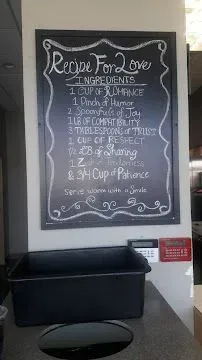 Recipe For Love
INGREDIENTS
1 CUP OF ROMANCE
1 Pinch of Humor
2 Spoonfuls of Joy
1 LB OF COMPATIBILITY
3 TABLESPOONS OF TRUST
1 CUP OF RESPECT
1/2 LB of Sharing
1 Tenderness
& 3/4 Cup of Patience
Serve warm with a Smile